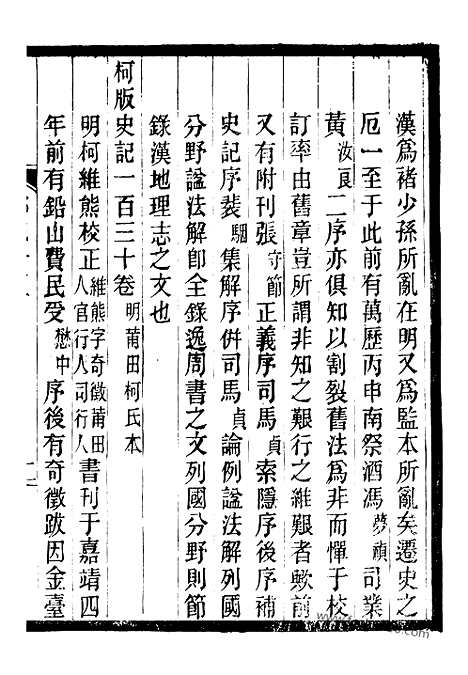 漢爲褚少孫所亂在明又爲監本所亂矣遷史之
厄一至于此前有萬歷丙申南祭酒馮夢禎司業
黃汝良二序亦俱知以割裂舊法爲非而憚于校
訂率由舊章豈所謂非知之艱行之維艱者歟前
又有附刊張守節正義序司馬貞索隱序後序補
史記序裴駰集解序併司馬貞論例諡法解列國
分野諡法解卽全錄逸周書之文列國分野則節
錄漢地理志之文也
柯版史記一百三十卷明莆田柯氏本
明柯維熊校正維熊字奇徵莆田人官行人司行人書刊于嘉靖四
年前有鉛山費民受懋中序後有奇徵跋因金臺